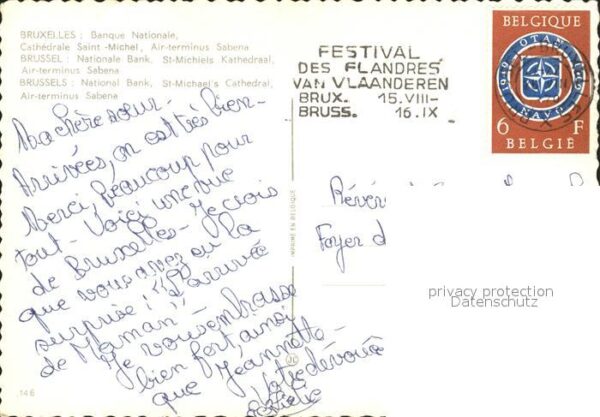 BRUXELLES : Banque Nationale,
Cathédrale Saint-Michel, Air-terminus Sabena
BRUSSEL : Nationale Bank, St-Michiels Kathedraal,
Air-terminus Sabena
BRUSSELS : National Bank, St-Michael's Cathedral,
Air-terminus Sabena
FESTIVAL
DES FLANDRES
VAN VLAANDEREN
BRUX. 15.VIII-
BRUSS. 16.IX
BELGIQUE
OTAN
1949 1969
NAVO
6 F
BELGIË
Ma chère sœur-
Arrivées, on est très bien-
Merci, beaucoup pour
tout- Voici une vue
de Bruxelles- Je crois
que vous avez eu la
surprise ! "L'arrivée
de Maman"
Je vous embrasse
bien fort, ainsi
que Jeannette-
Votre dévouée
IMPRIMÉ EN BELGIQUE
Foyer d
privacy protection
Datenschutz
146